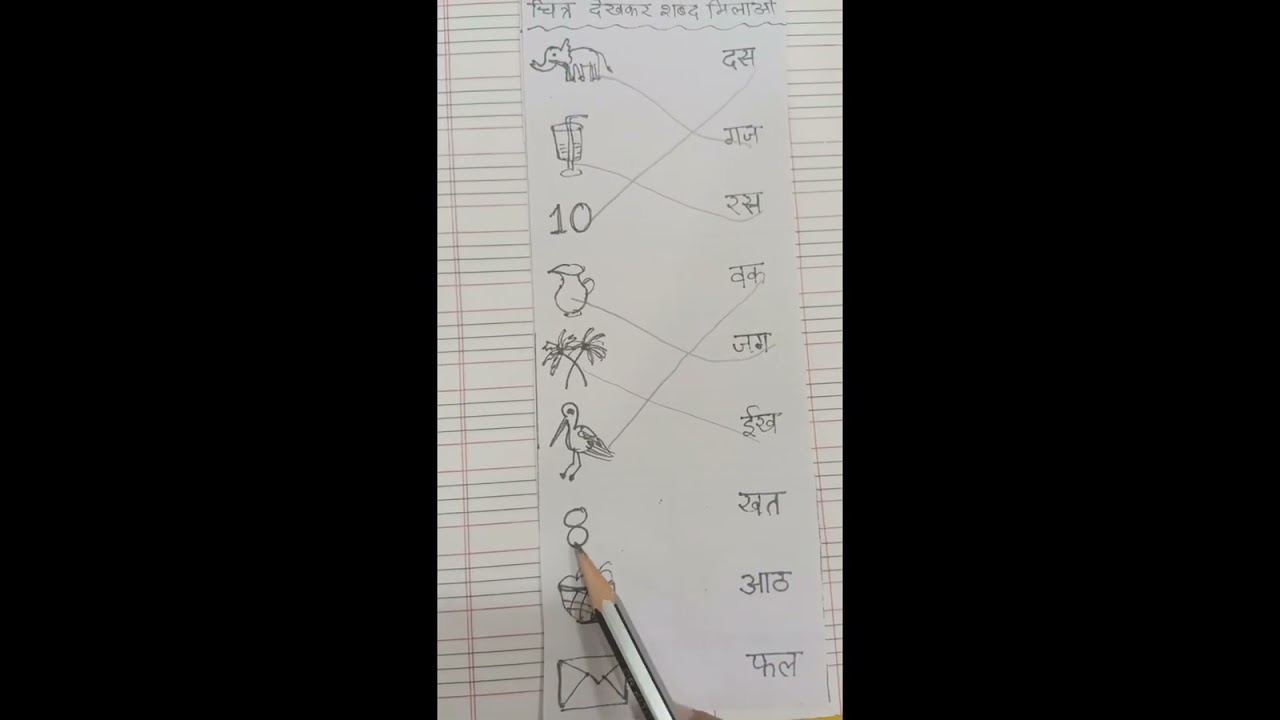 चित्र देखकर शब्द मिलाओ
दस
गज
रस
10
वक
जग
ईख
खत
8
आठ
फल